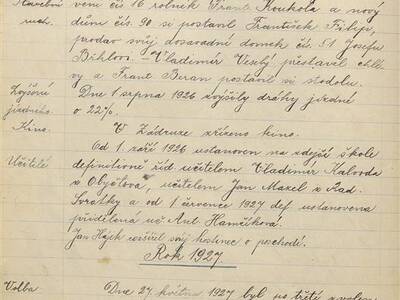 Stavební vené čís. 76 rolník Frant. Koukola a nový
ruch. dům čís. 90 si postavil František Filip,
prodav svůj dosavadní domek čís. 51 Josefu
Vladimír Veselý přestavěl chlé-
vy a Frant. Beran postavil si stodolu.
Zvýšení Dne 1 srpna 1926 zvýšily dráhy jízdné
jízdného o 22%.
Kino. V Zádruze zřízeno kino.
Od 1. září 1926 ustanoven na zdejší škole
Učitelé definitivně říd. učitelem Vladimír Kalvoda
z Obyčtova, učitelem Jan Mazel z Rad.
Svratky a od 1 července 1927 def. ustanovena
přidělená uč. Ant. Hamčíková.
Jan Hájek rozšířil svůj hostinec o poschodí.
Rok 1927.
Volba Dne 27. května 1927 byl po třetí zvolen